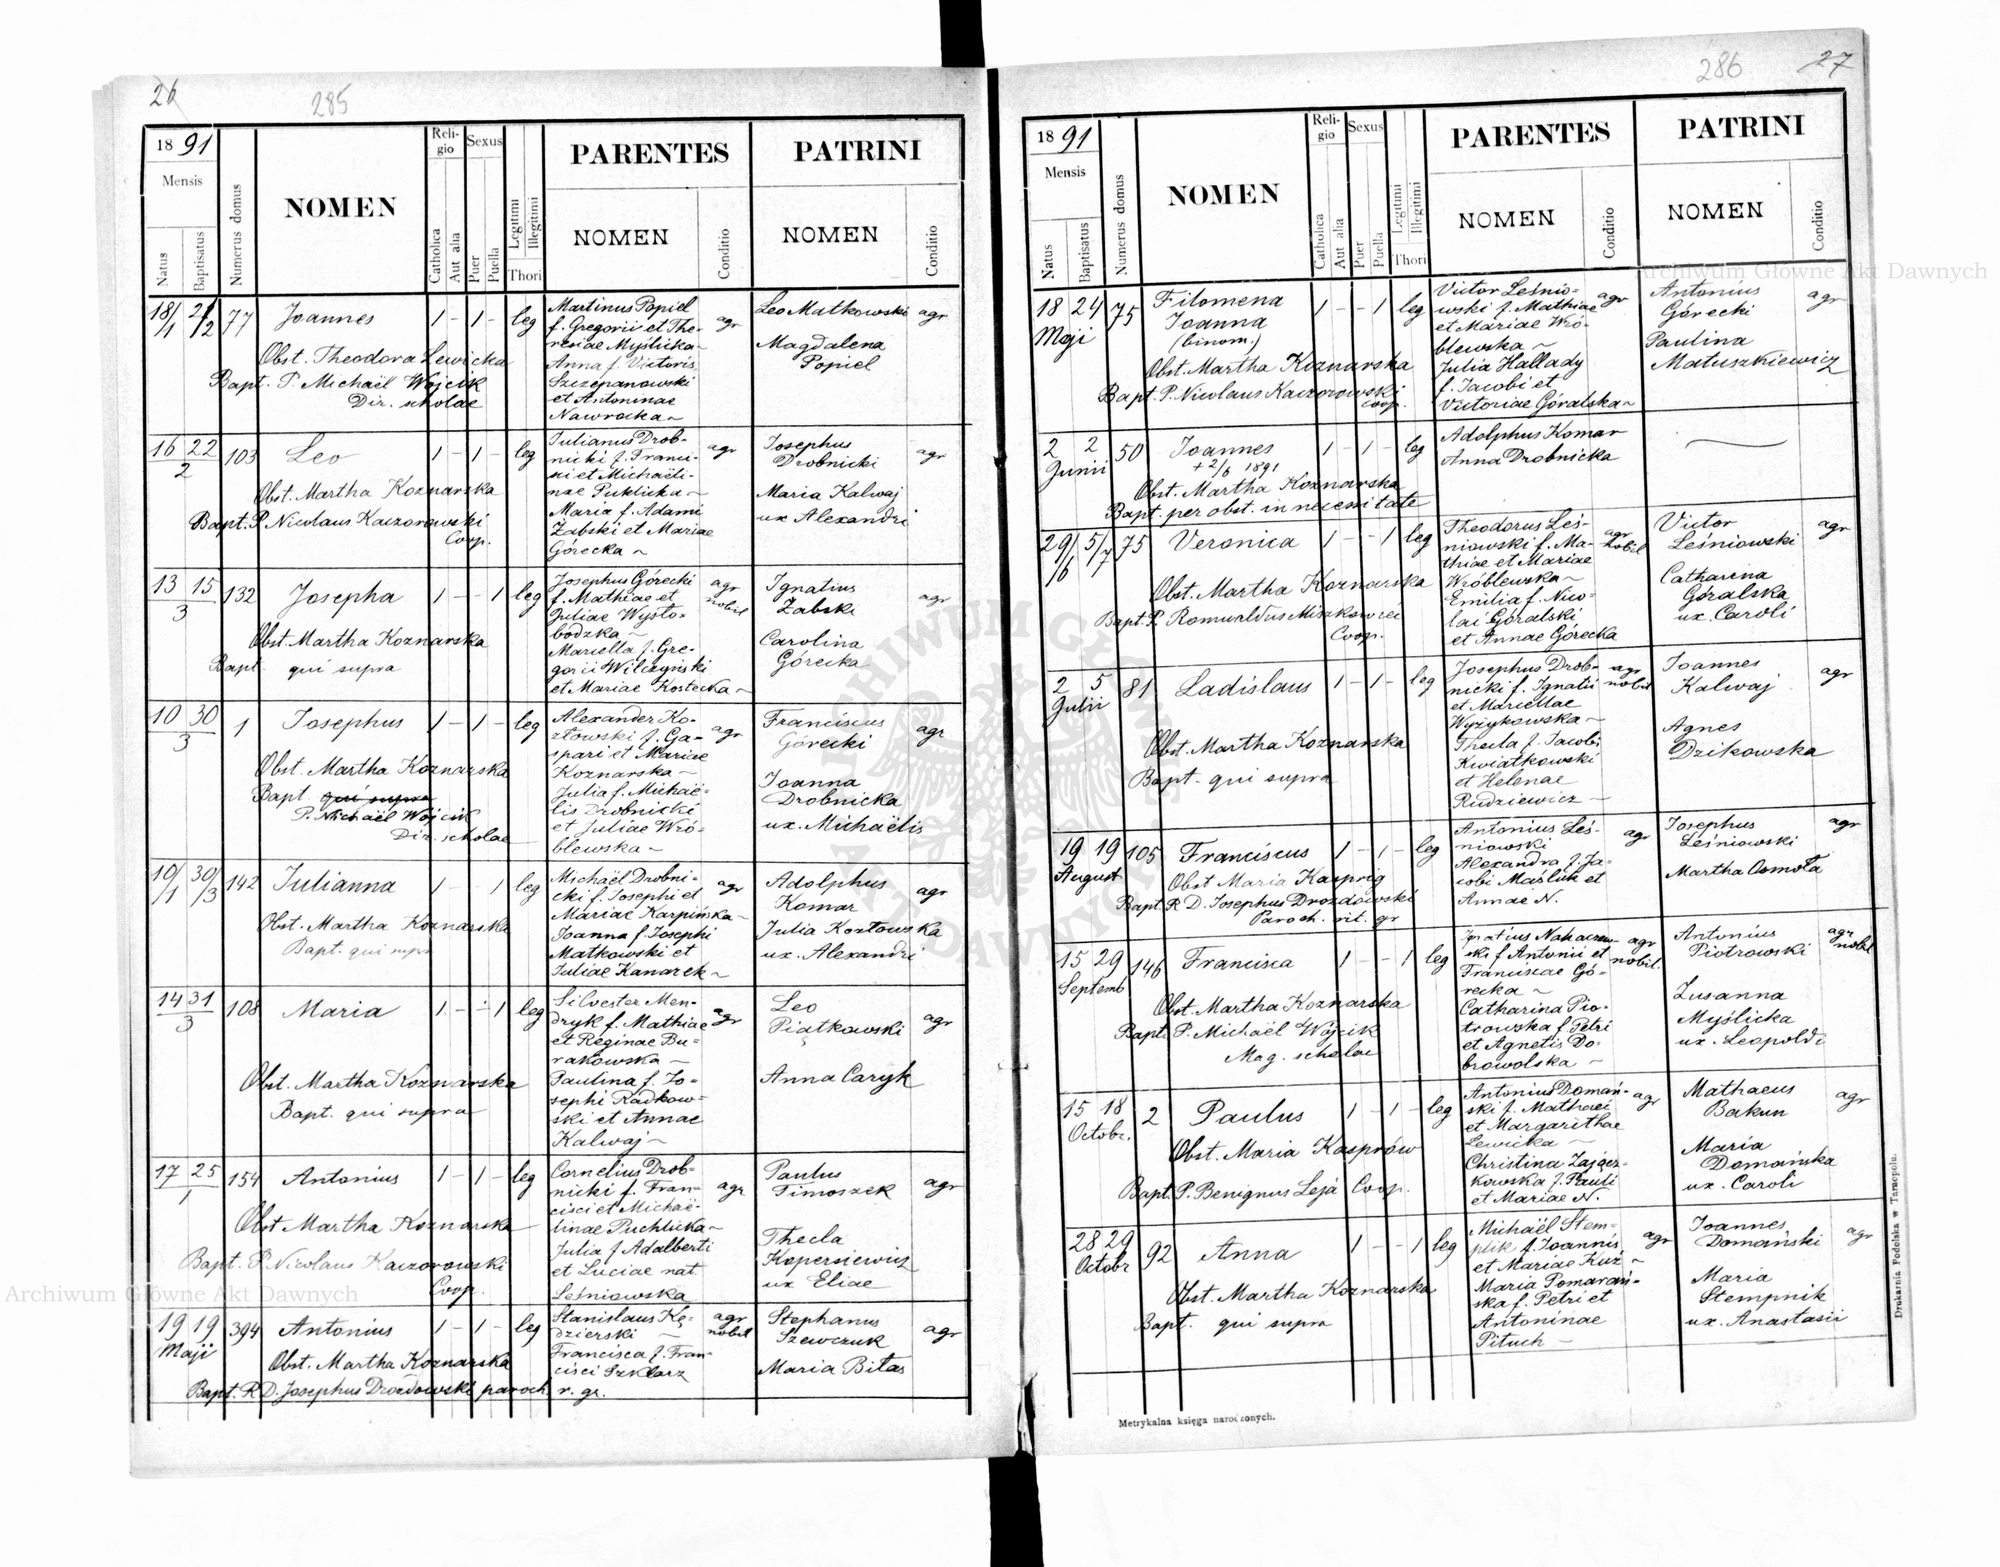 26
285
18 91
Mensis
Natus
Baptisatus
Numerus domus
NOMEN
Reli-
gio
Catholica
Aut alia
Sexus
Puer
Puella
Legitimi
Illegitimi
Thori
PARENTES
NOMEN
Conditio
PATRINI
NOMEN
Conditio
18/1 2/2 77 Joannes 1 - 1 - leg
Obst. Theodora Lewicka
Bapt. P. Michaël Wojcik
Dir. scholae
Martinus Popiel
f. Gregorii et The-
resiae Myślicka
Anna f. Victoris
Szczepanowski
et Antoninae
Nawrocka ~
agr
Leo Matkowski agr
Magdalena
Popiel
16 22
2
103 Leo 1 - 1 - leg
Obst. Martha Koznarska
Bapt. P. Nicolaus Kaczorowski
Coop.
Julianus Drob-
nicki f. Franci-
sci et Michaëli-
nae Puklicka ~
Maria f. Adami
Żabski et Mariae
Górecka ~
agr
Josephus
Drobnicki
agr
Maria Kalwaj
ux Alexandri
13 15
3
132 Josepha 1 - - 1 leg
Obst. Martha Koznarska
Bapt qui supra
Josephus Górecki
f. Mathiae et
Juliae Wysło-
bodzka ~
Mariella f. Gre-
gorii Wilczyński
et Mariae Kostecka ~
agr
nobil
Ignatius
Żabski
agr
Carolina
Górecka
10 30
3
1 Josephus 1 - 1 - leg
Obst. Martha Koznarska
Bapt qui supra
P. Michaël Wojcik
Dir. scholae
Alexander Ko-
złowski f. Ga-
spari et Mariae
Koznarska ~
Julia f. Michaë-
lis Drobnicki
et Juliae Wró-
blewska ~
agr
Franciscus
Górecki
agr
Joanna
Drobnicka
ux. Michaëlis
10/1 30/3 142 Julianna 1 - - 1 leg
Obst. Martha Koznarska
Bapt. qui supra
Michaël Drobni-
cki f. Josephi et
Mariae Karpińska ~
Joanna f. Josephi
Matkowski et
Juliae Kanarek ~
agr
Adolphus
Komar
agr
Julia Kozłowska
ux. Alexandri
14 31
3
108 Maria 1 - - 1 leg
Obst. Martha Koznarska
Bapt. qui supra
Silvester Men-
dryk f. Mathiae
et Reginae Bu-
rakowska ~
Paulina f. Jo-
sephi Radkow-
ski et Annae
Kalwaj ~
agr
Leo
Piątkowski
agr
Anna Caryk
17 25
1
154 Antonius 1 - 1 - leg
Obst Martha Koznarska
Bapt. P. Nicolaus Kaczorowski
Coop.
Cornelius Drob-
nicki f. Fran-
cisci et Michaë-
linae Puchlicka ~
Julia f Adalberti
et Luciae nat.
Leśniowska
agr
Paulus
Timoszek
agr
Thecla
Kopersiewicz
ux Eliae
19 19
Maji
394 Antonius 1 - 1 - leg
Obst. Martha Koznarska
Bapt. R D. Josephus Drozdowski paroch. r. gr.
Stanislaus Kę-
dzierski ~
Francisca f. Fran-
cisci Szklarz
agr
nobil
Stephanus
Szewczuk
agr
Maria Biłas
286
27
18 91
Mensis
Natus
Baptisatus
Numerus domus
NOMEN
Reli-
gio
Catholica
Aut alia
Sexus
Puer
Puella
Legitimi
Illegitimi
Thori
PARENTES
NOMEN
Conditio
PATRINI
NOMEN
Conditio
18 24
Maji
75 Filomena 1 - - 1 leg
Joanna
(binom.)
Obst. Martha Koznarska
Bapt. P. Nicolaus Kaczorowski
Coop.
Victor Leśnio-
wski f. Mathiae
et Mariae Wró-
blewska ~
Julia Hallady
f. Jacobi et
Victoriae Góralska ~
agr
Antonius
Górecki
agr
Paulina
Matuszkiewicz
2 2
Junii
50 Joannes 1 - 1 - leg
+ 2/6 1891
Obst. Martha Koznarska
Bapt. per obst. in necessitate
Adolphus Komar
Anna Drobnicka
29/6 5/7 75 Veronica 1 - - 1 leg
Obst. Martha Koznarska
Bapt. P. Romualdus Miszkowicz
Coop.
Theodorus Leś-
niowski f. Ma-
thiae et Mariae
Wróblewska ~
Emilia f. Nico-
lai Góralski
et Annae Górecka
agr
nobil
Victor
Leśniowski
agr
Catharina
Góralska
ux. Caroli
2 5
Julii
81 Ladislaus 1 - 1 - leg
Obst. Martha Koznarska
Bapt. qui supra
Josephus Drob-
nicki f. Ignatii
et Mariellae
Wyżykowska ~
Thecla f. Jacobi
Kwiatkowski
et Helenae
Rudziewicz ~
agr
nobil
Joannes
Kalwaj
agr
Agnes
Dzikowska
19 19
August
105 Franciscus 1 - 1 - leg
Obst Maria Kasprig
Bapt. R D. Josephus Drozdowski
Paroch. rit. gr
Antonius Leś-
niowski
Alexandra f. Ja-
cobi Maśluk et
Annae N.
agr
Josephus
Leśniowski
agr
Martha Osmoła
15 29
Septemb
146 Francisca 1 - - 1 leg
Obst. Martha Koznarska
Bapt. P. Michaël Wojcik
Mag. scholae
Ignatius Nahaczew-
ski f Antonii et
Franciscae Gó-
recka ~
Catharina Pio-
trowska f. Petri
et Agnetis Do-
browolska ~
agr
nobil.
Antonius
Piotrowski
agr
nobil
Zusanna
Myślicka
ux. Leopoldi
15 18
Octobr.
2 Paulus 1 - 1 - leg
Obst. Maria Kasprów
Bapt. P. Benignus Lejà Coop.
Antonius Domań-
ski f. Mathaei
et Margarithae
Lewicka ~
Christina Zając-
kowska f. Pauli
et Mariae N.
agr
Mathaeus
Bakun
agr
Maria
Domańska
ux. Caroli
28 29
Octobr
92 Anna 1 - - 1 leg
Obst. Martha Koznarska
Bapt. qui supra
Michaël Stem-
pnik f. Joannis
et Mariae Kuź ~
Maria Pomarań-
ska f. Petri et
Antoninae
Pituch ~
agr
Joannes
Domański
agr
Maria
Stempnik
ux. Anastasii
Metrykalna księga narodzonych.
Drukarnia Podolska w Tarnopolu.
Archiwum Główne Akt Dawnych
Archiwum Główne Akt Dawnych
ARCHIWUM GŁÓWNE AKT DAWNYCH